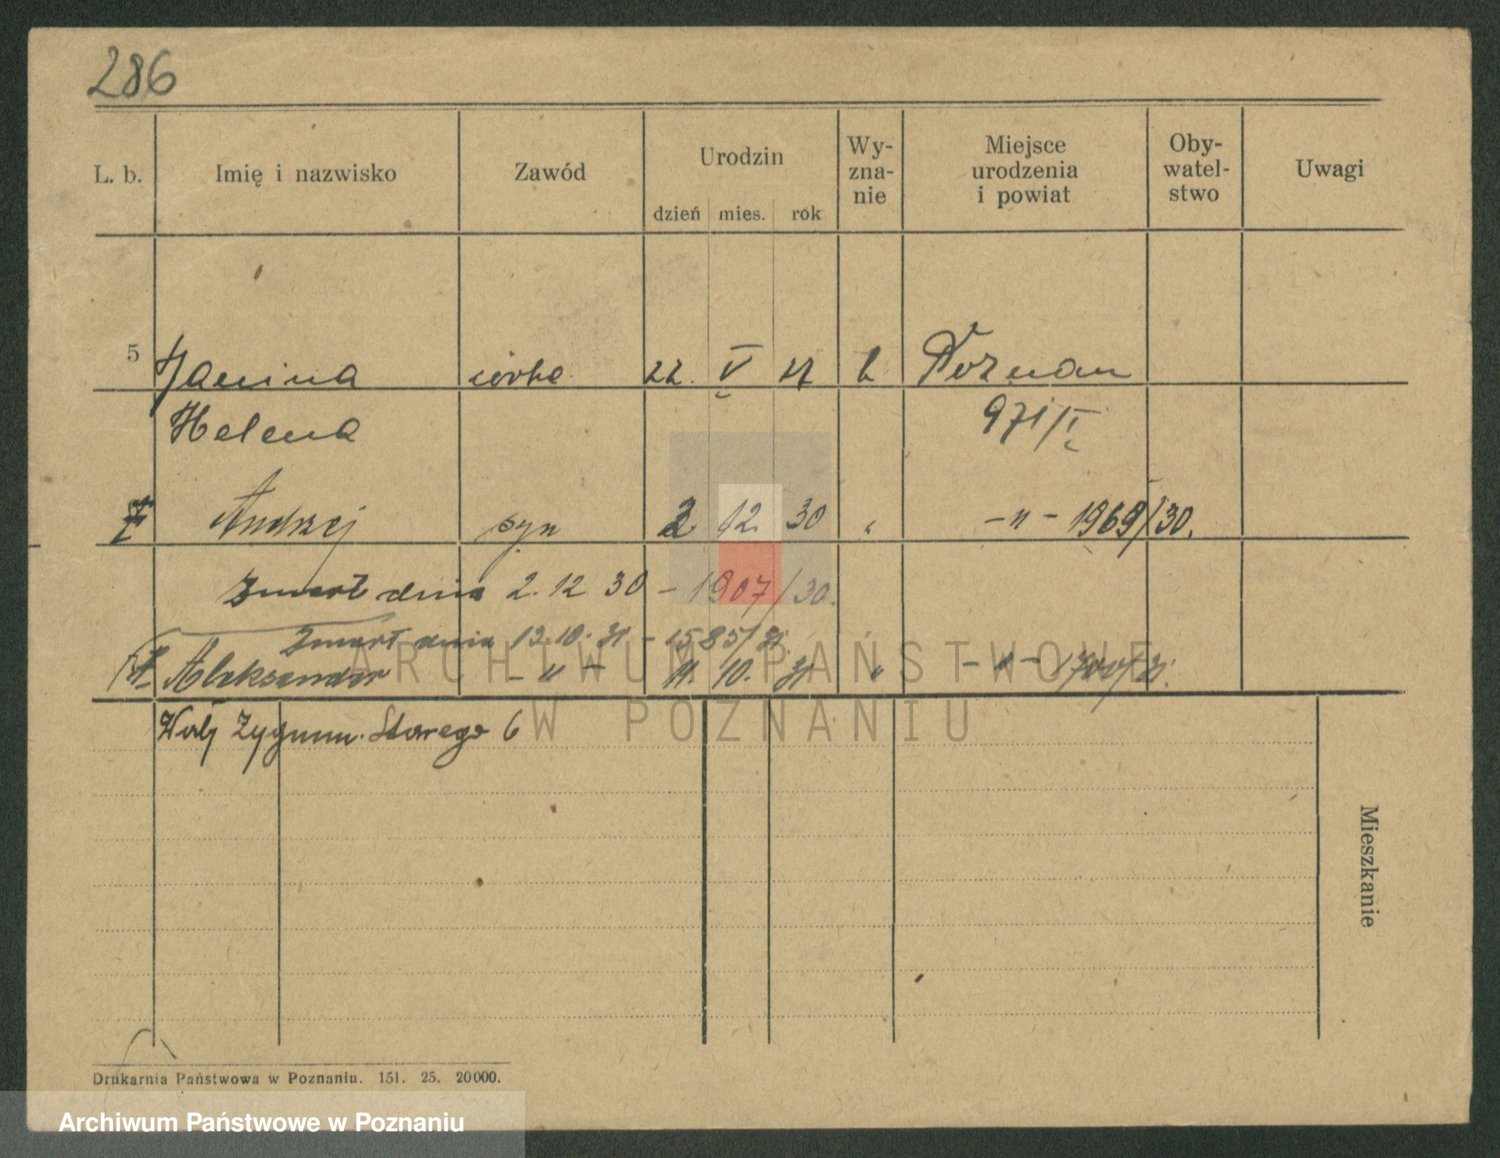 286
L. b. Imię i nazwisko Zawód Urodzin dzień mies. rok Wy-zna-nie Miejsce urodzenia i powiat Oby-watel-stwo Uwagi
5 Janina córka 22. V 27 Poznan
Helena 971/I
Andrzej syn 2 12. 30 " - " - 1969/30.
Zmarł dnia 2. 12 30 - 1907/30.
Zmarł dnia 13. 10. 31 - 1585/31.
Aleksander - " - 11. 10. 31 " - " - 1700/31.
ARCHIWUM PAŃSTWOWE
W POZNANIU
Wały Zygmun. Starego 6
Mieszkanie
Drukarnia Państwowa w Poznaniu. 151. 25. 20000.
Archiwum Państwowe w Poznaniu